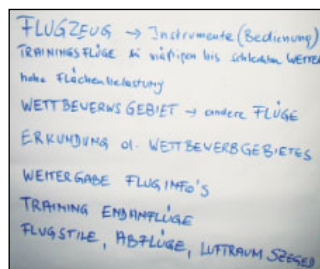 FLUGZEUG → Instrumente (Bedienung)
TRAININGSFLÜGE bei mäßigen bis schlechtem WETTER
hohe Flächenbelastung
WETTBEWERBSGEBIET → andere FLÜGE
ERKUNDUNG d. WETTBEWERBGEBIETES
WEITERGABE FLUGINFO'S
TRAINING ENDANFLÜGE
FLUGSTILE, ABFLÜGE, LUFTRAUM SZEGED